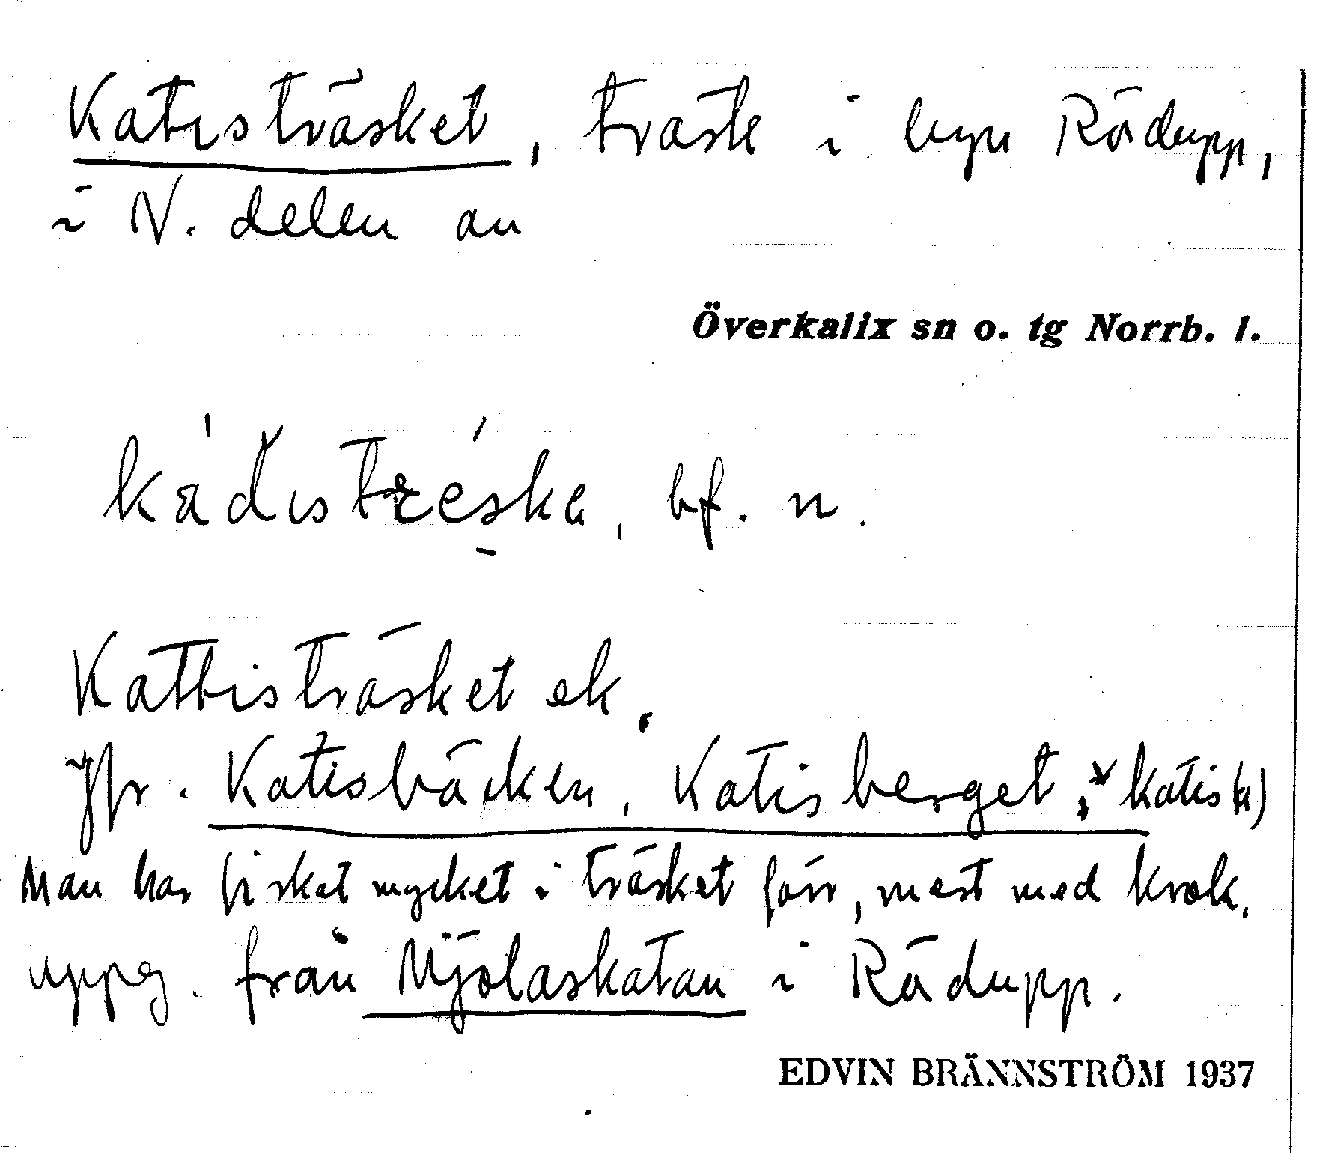 Katisträsket, träsk i byn Rödupp,
i N. delen av
Överkalix sn o. tg Norrb. l.
bf. n.
Kattisträsket ek.
Jfr. Katisbäcken, Katisberget, * katis(a)
Man har fiskat mycket i träsket förr, mest med krok.
uppg. från Mjölaskatan i Rödupp.
EDVIN BRÄNNSTRÖM 1937